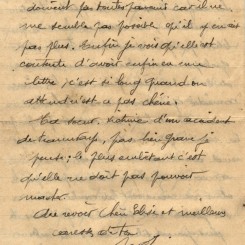 doivent pas toutes parvenir car il ne
me semble pas possible qu'il y en ait
pas plus. Enfin je vois qu'elle est
contente d'avoir enfin eu une
lettre, c'est si long quand on
attend n'est ce pas chérie.
Ta soeur, victime d'un accident
de tramway, pas bien grave je
pense; le plus embêtant c'est
qu'elle ne doit pas pouvoir
marcher.
Au revoir chère Elise et meilleures
caresses de ton